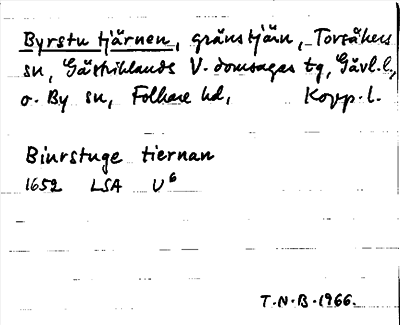 Byrstu tjärnen, gränstjärn, Torsåkers
sn, Gästriklands V. domsagas tg, Gävl. l.,
o. By sn, Folkare hd, Kopp. l.
Biurstuge tiernan
1652 LSA U⁶
T.N.B. 1966.